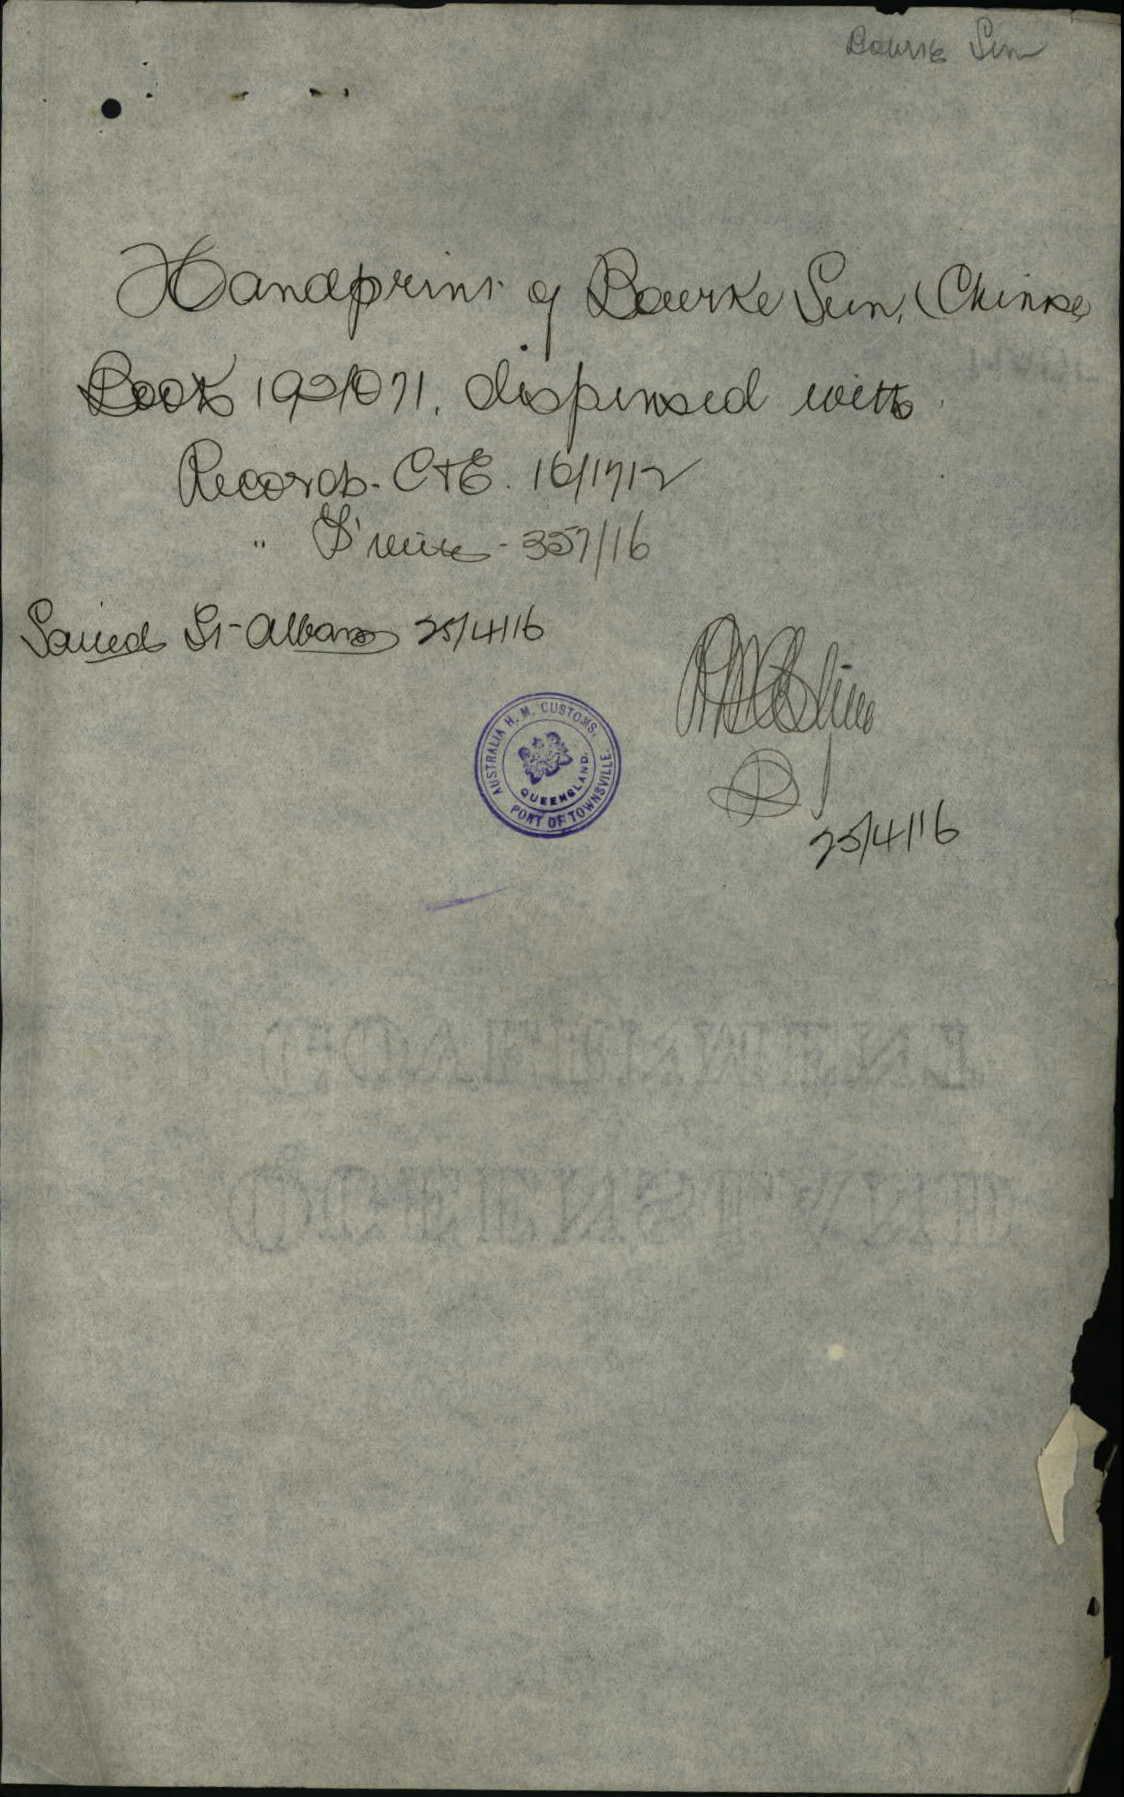 Bourke Sun
Handprint of Bourke Sun, (Chinese)
Book 192/071. dispensed with
Records. C+E. 16/1712
" T'ville - 357/16
Sailed St Albans 25/4/16
AUSTRALIA H. M. CUSTOMS.
QUEENSLAND.
PORT OF TOWNSVILLE.
25/4/16
GOVERNMENT
QUEENSLAND